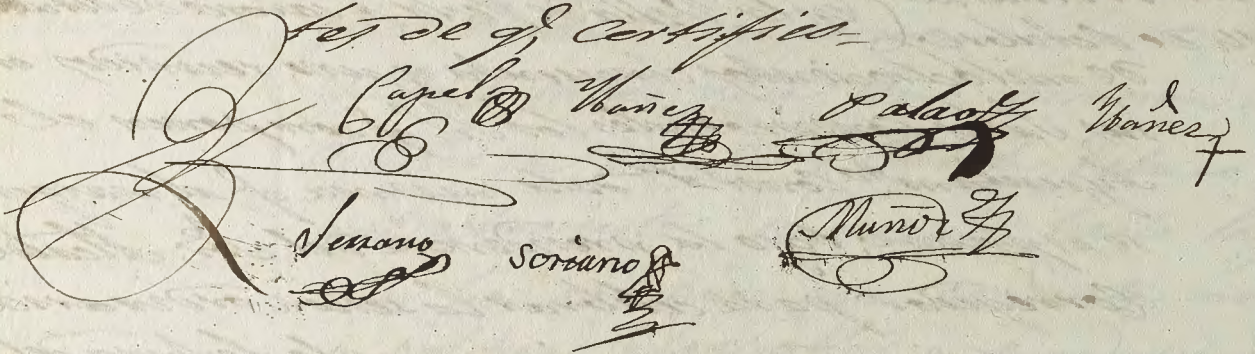 tes de q.e certifico=
Capel Ybañez Palao Ybañez
Serrano Soriano Muñoz